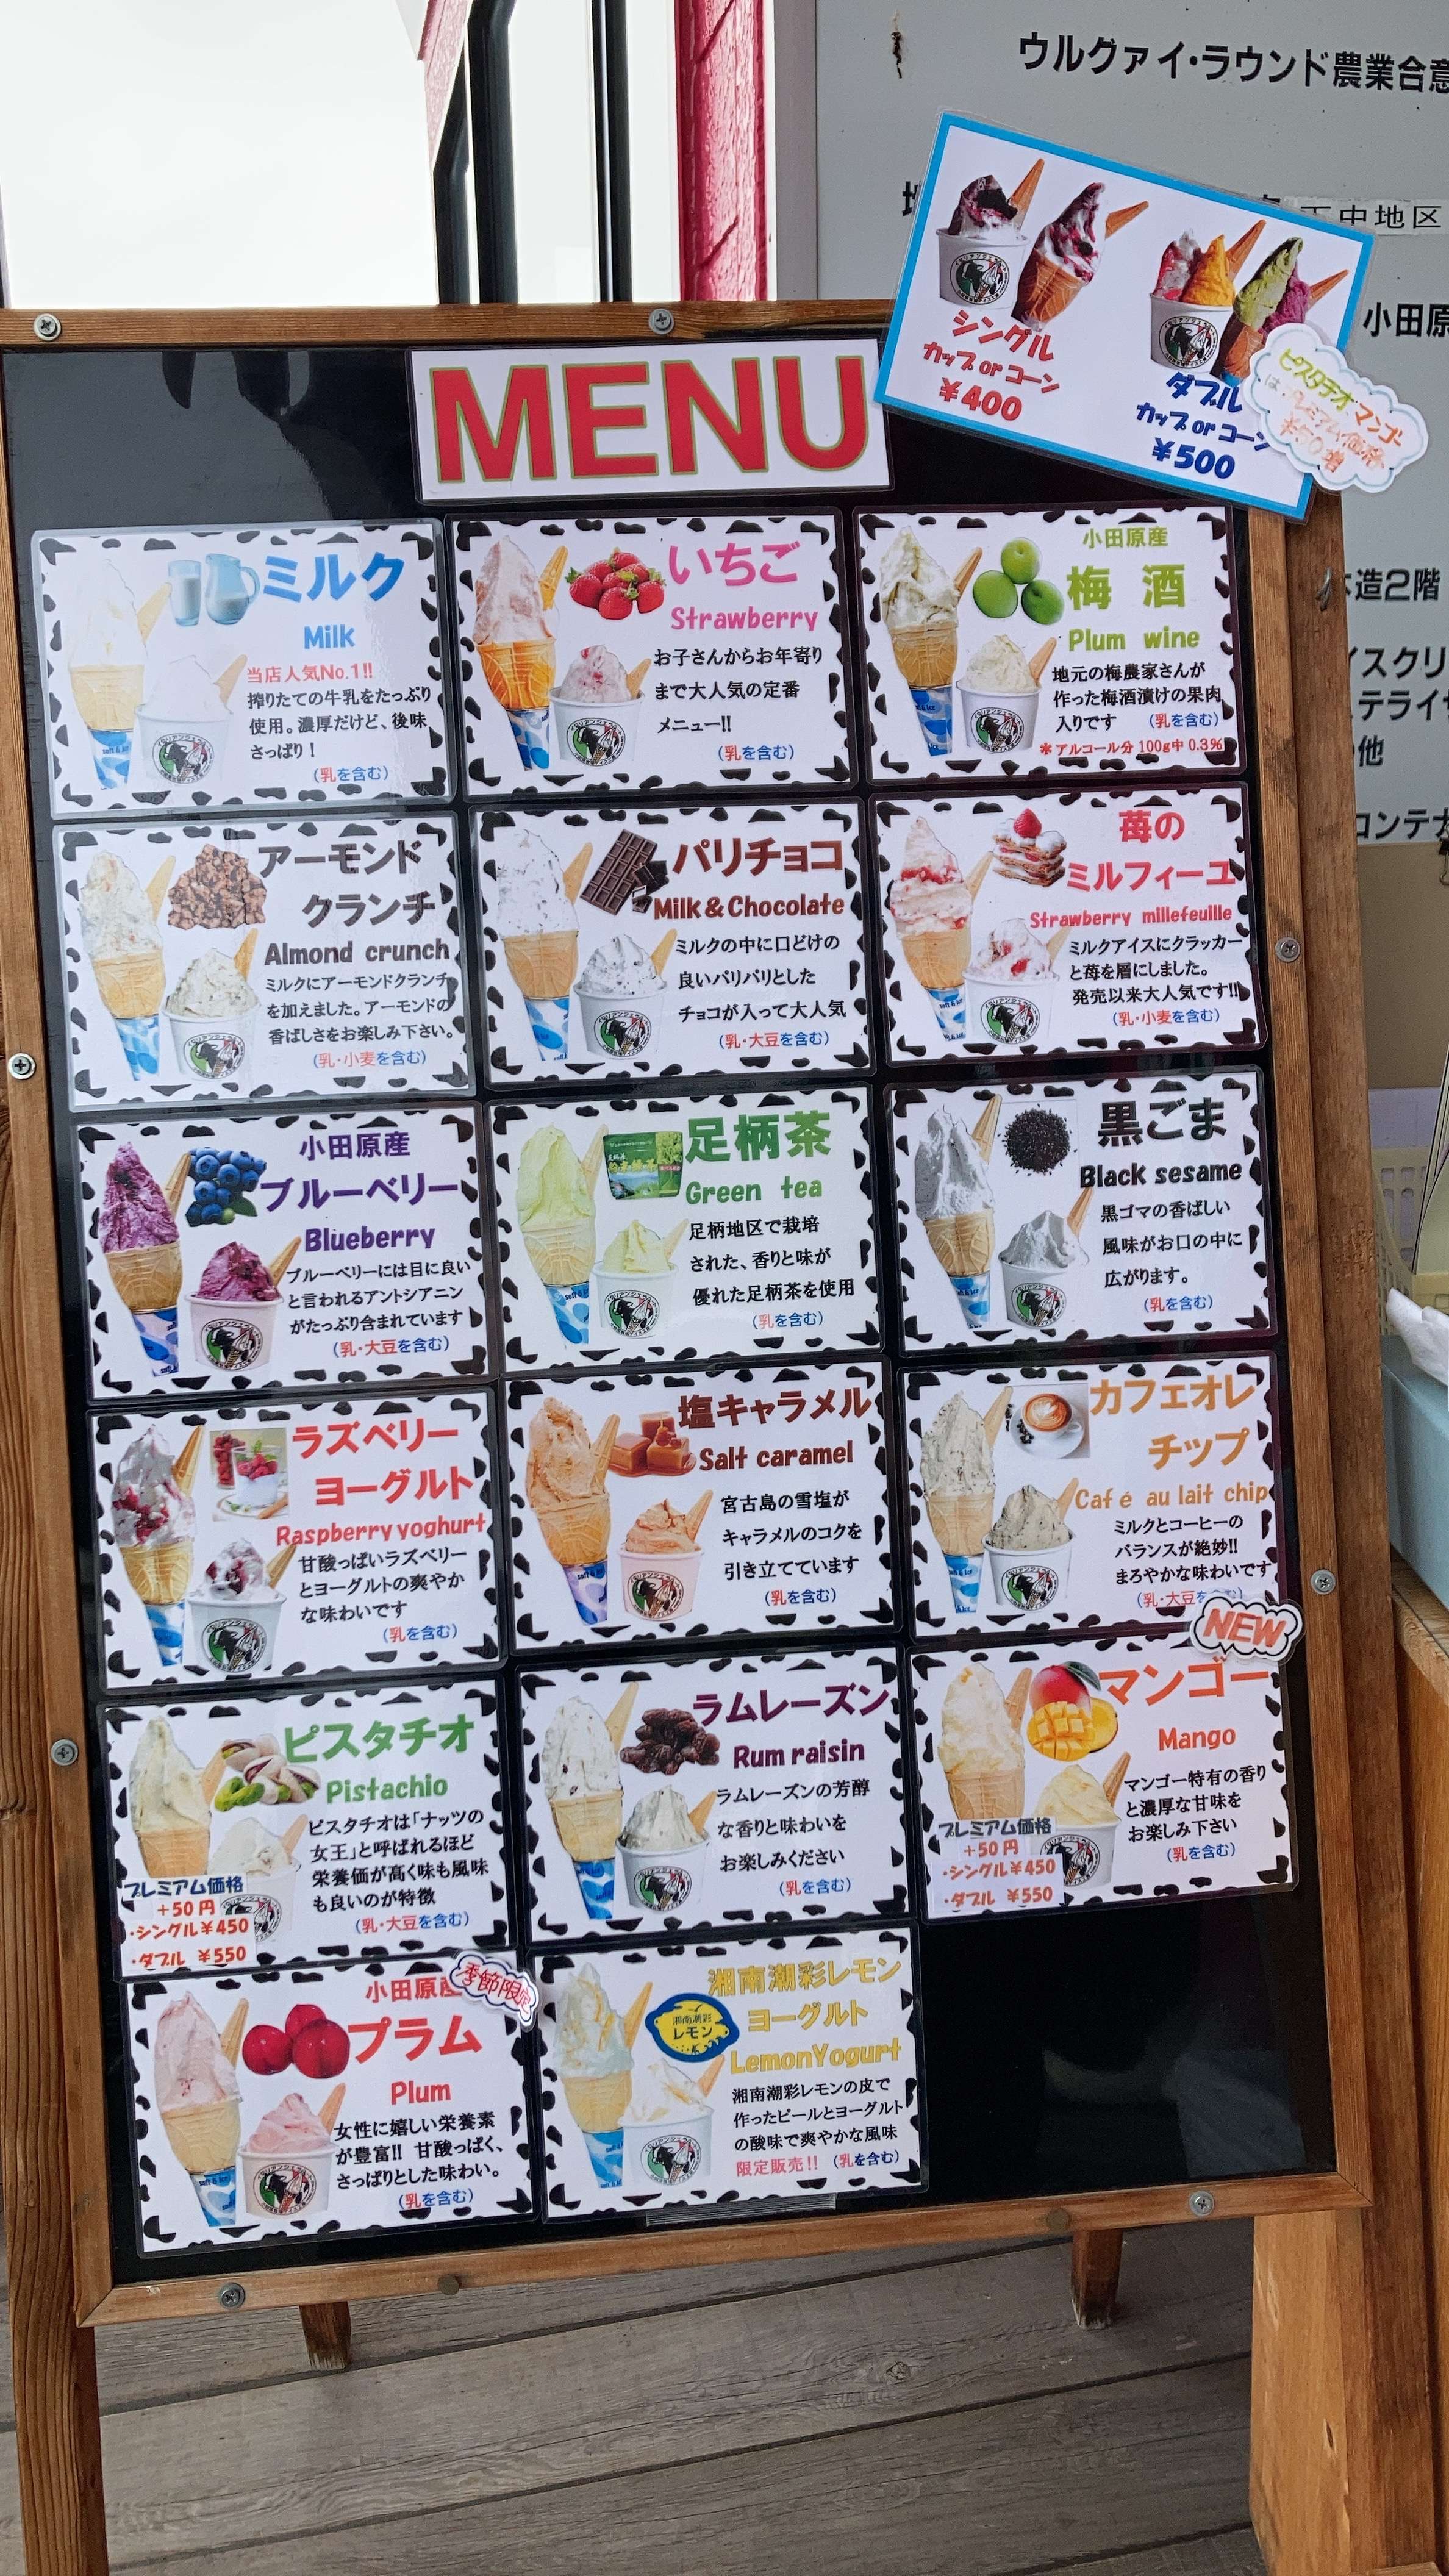 ウルグァイ・ラウンド農業合意
中地区
小田原
造2階
イスクリ
テライ
他
コンテナ
シングル
カップ or コーン
¥400
ダブル
カップ or コーン
¥500
ピスタチオ・マンゴー
MENU
ミルク
Milk
当店人気No.1!!
搾りたての牛乳をたっぷり
使用。濃厚だけど、後味
さっぱり！
(乳を含む)
いちご
Strawberry
お子さんからお年寄り
まで大人気の定番
メニュー!!
(乳を含む)
小田原産
梅 酒
Plum wine
地元の梅農家さんが
作った梅酒漬けの果肉
入りです (乳を含む)
*アルコール分 100g中 0.3%
アーモンド
クランチ
Almond crunch
ミルクにアーモンドクランチ
を加えました。アーモンドの
香ばしさをお楽しみ下さい。
(乳・小麦を含む)
パリチョコ
Milk & Chocolate
ミルクの中に口どけの
良いパリパリとした
チョコが入って大人気
(乳・大豆を含む)
苺の
ミルフィーユ
Strawberry millefeuille
ミルクアイスにクラッカー
と苺を層にしました。
発売以来大人気です!!
(乳・小麦を含む)
小田原産
ブルーベリー
Blueberry
ブルーベリーには目に良い
と言われるアントシアニン
がたっぷり含まれています
(乳・大豆を含む)
足柄茶
Green tea
足柄地区で栽培
された、香りと味が
優れた足柄茶を使用
(乳を含む)
黒ごま
Black sesame
黒ゴマの香ばしい
風味がお口の中に
広がります。
(乳を含む)
ラズベリー
ヨーグルト
Raspberry yoghurt
甘酸っぱいラズベリー
とヨーグルトの爽やか
な味わいです
(乳を含む)
塩キャラメル
Salt caramel
宮古島の雪塩が
キャラメルのコクを
引き立てています
(乳を含む)
カフェオレ
チップ
Café au lait chip
ミルクとコーヒーの
バランスが絶妙!!
まろやかな味わいです
(乳・大豆を含む)
ピスタチオ
Pistachio
ピスタチオは「ナッツの
女王」と呼ばれるほど
栄養価が高く味も風味
も良いのが特徴
(乳・大豆を含む)
プレミアム価格
+50円
・シングル¥450
・ダブル ¥550
ラムレーズン
Rum raisin
ラムレーズンの芳醇
な香りと味わいを
お楽しみください
(乳を含む)
NEW
マンゴー
Mango
マンゴー特有の香り
と濃厚な甘味を
お楽しみ下さい
(乳を含む)
プレミアム価格
+50円
・シングル¥450
・ダブル ¥550
季節限定
小田原産
プラム
Plum
女性に嬉しい栄養素
が豊富!! 甘酸っぱく、
さっぱりとした味わい。
(乳を含む)
湘南潮彩レモン
ヨーグルト
LemonYogurt
湘南潮彩
レモン
湘南潮彩レモンの皮で
作ったピールとヨーグルト
の酸味で爽やかな風味
限定販売!! (乳を含む)